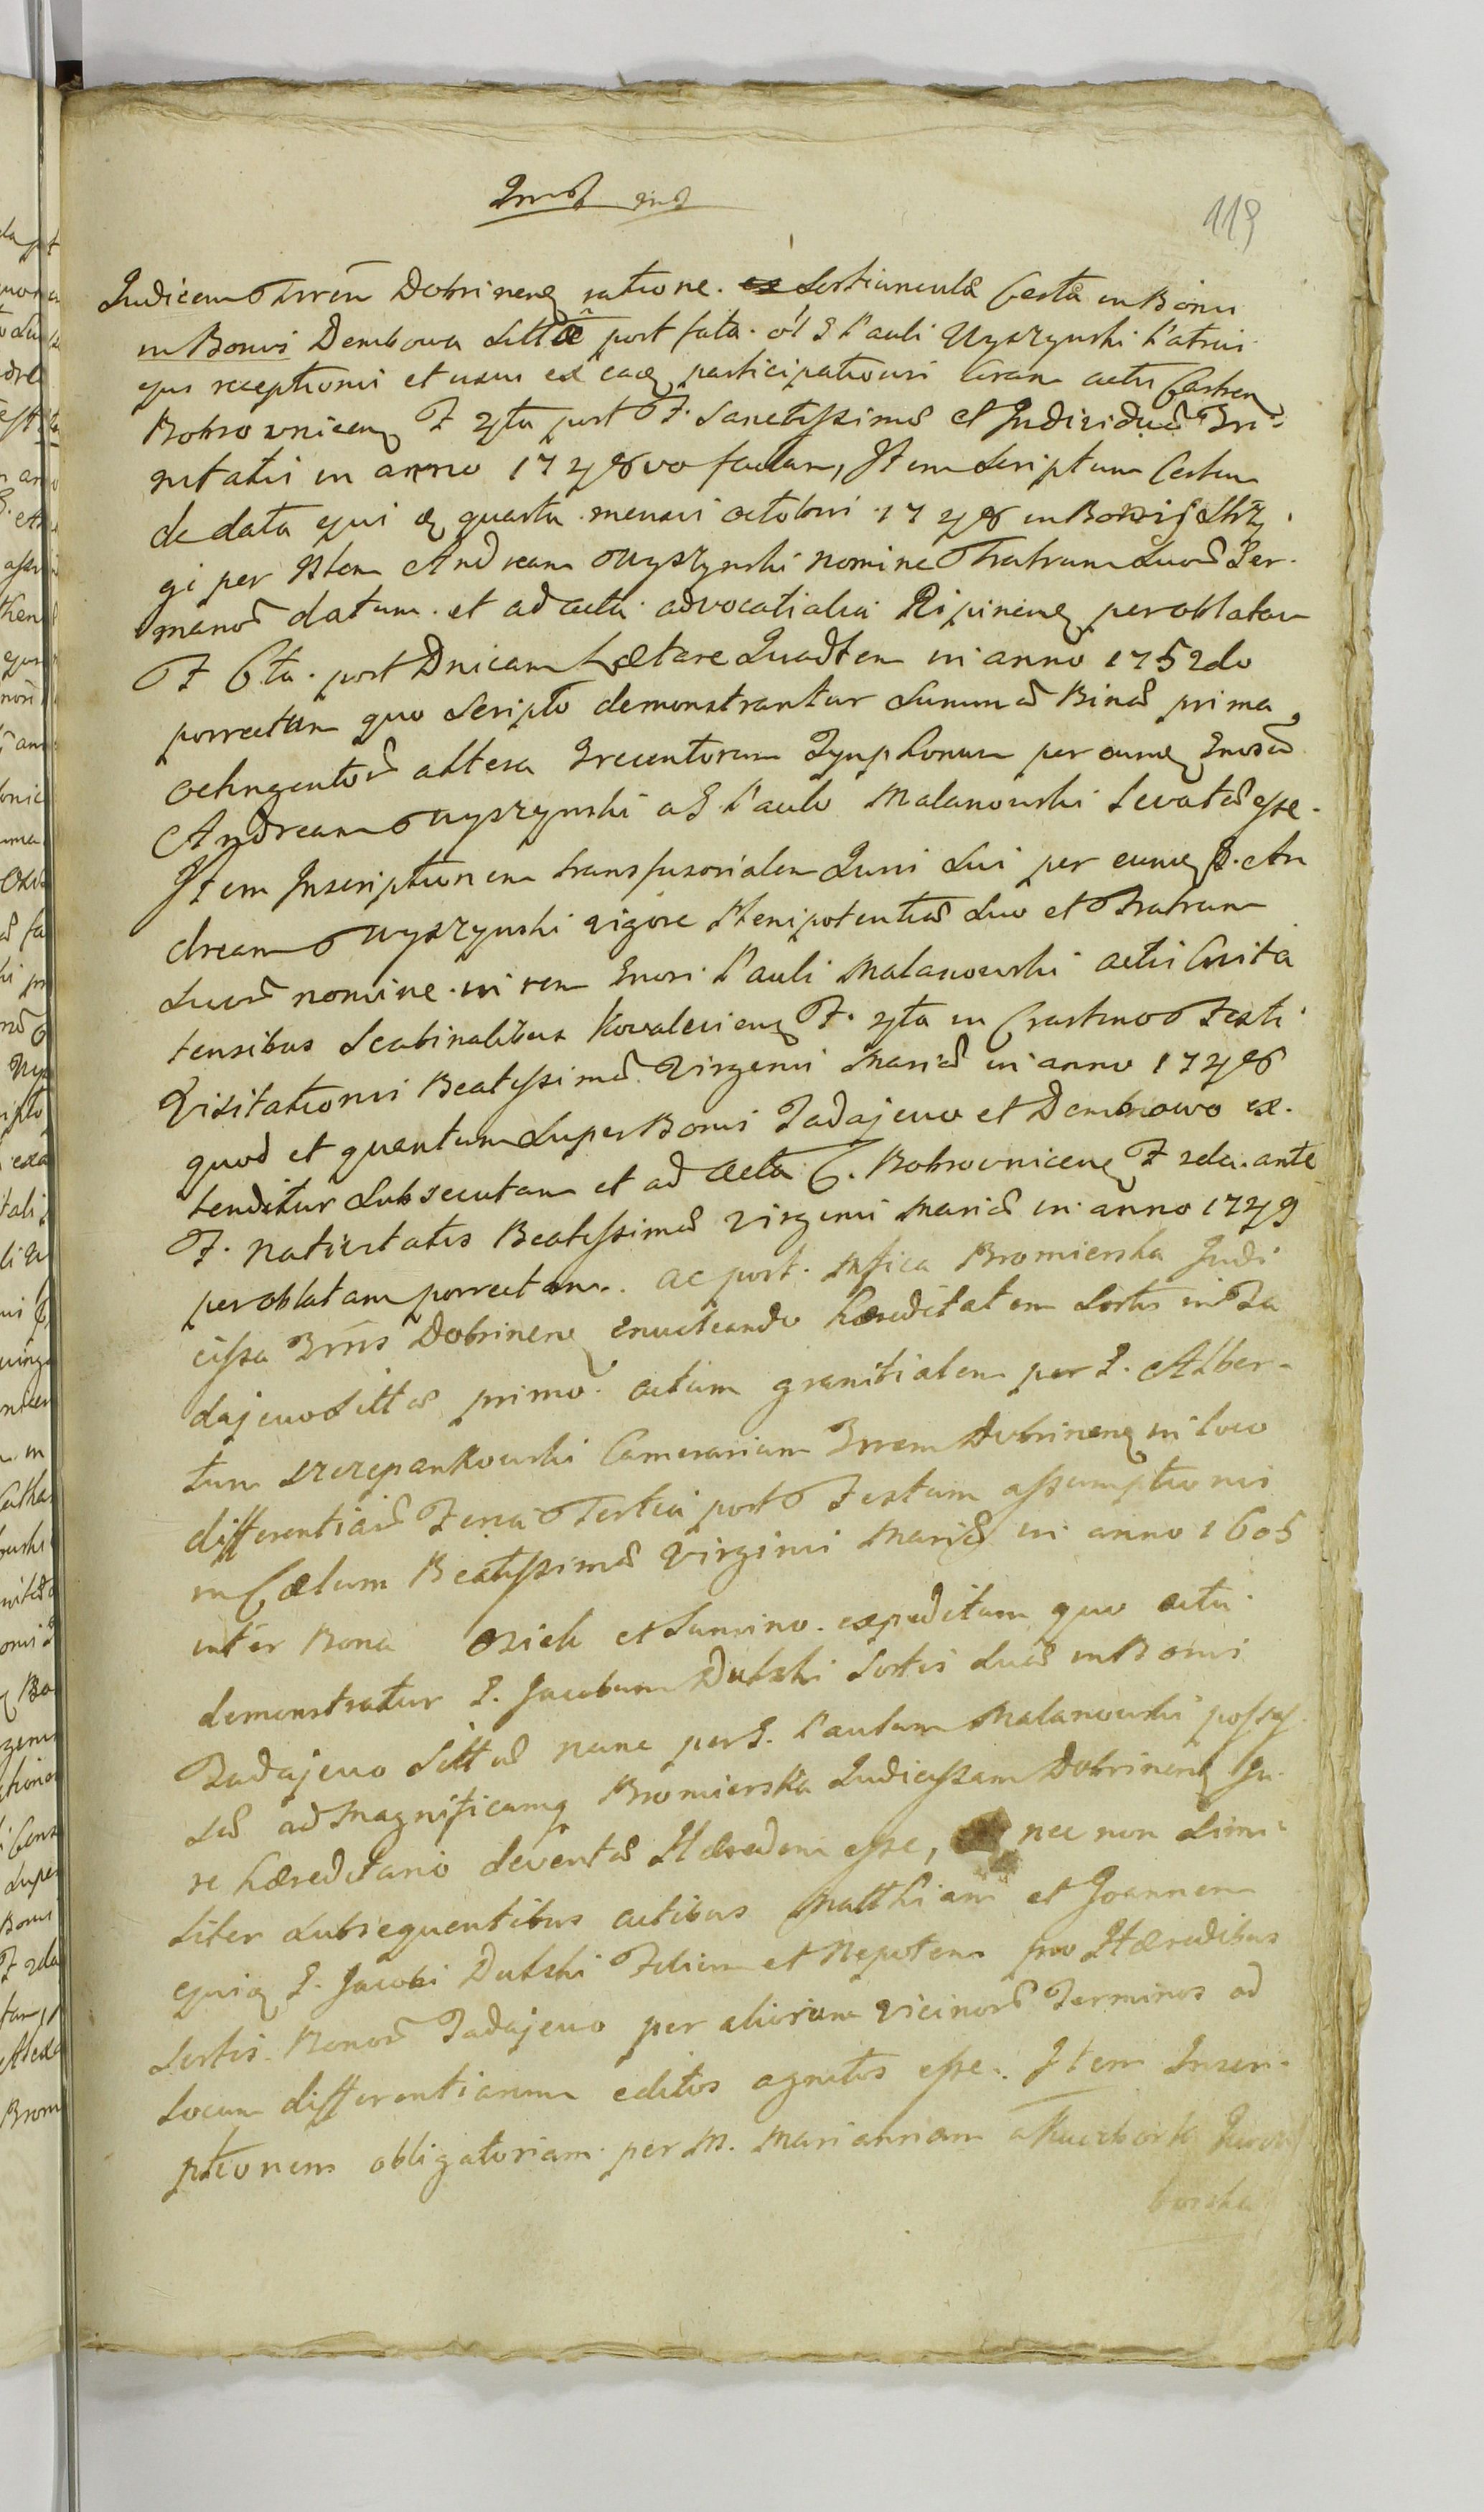 119
Judicem Terrēn Dobrinenq ratione. Sortiuncula Certa in Bonis
in Bonis Dembowa Littæ post fata. ol G Pauli Wyszynski Patrui
ejus receptionis et usus ex eaq participationis Coram actis Castren
Bobrownicenq F 4ta post F. Sanctissimæ et Individuæ Tri-
nitatis in anno 1748vo factam, Item Scriptum Certum
de data ejus quarta mensis octobris 1748 in Bonis
gi per Andream Wyszynski nomine Fratrum suorum Ger-
manorum datum et ad acta advocatialia Ripinenq per oblatam
F 6ta. post Dnicam Lætare Quadtem in anno 1752do
porrectum quo Scripto demonstrantur Summas Binas prima
octingentor altera Trecentorum Tynphonum per eumq Gnosum
Andream Wyszynski a G Paulo Malanowski levatas esse.
Item Inscriptionem transfusorialem Juris Sui per eumq G. An
dream Wyszynski vigore Plenipotentiæ Suo et Fratrum
Suor nomine in rem Gnosi Pauli Malanowski actis Civita
tensibus Scabinalibus Kowalevienq F. 4ta in Crastino Festi
Visitationis Beatissimæ Virginis Mariæ in anno 1748
quod et quantum Super Bonis Zadajewo et Dembowo ex-
tenditur Subsecutam et ad acta C. Bobrownicenq F 2da. ante
F. Nativitatis Beatissimæ Virginis Mariæ in anno 1749
per oblatam porrectam. ac post. Mfica Bromierska Judi
cissa Trrīs Dobrinenq enucleando hæreditatem Sortis in Za
dajewo Littæ primo actum granitialem per G. Alber-
tum Szczepankowski Camerarium Trrem Dobrinenq in loco
differentiarum Feria Tertia post Festum assumptionis
in Cælum Beatissimæ Virginis Mariæ in anno 1605
inter Bona Osiek et Sumino. expeditum quo actu
demonstratur G. Jacobum Dulski Sortis Suæ in Bonis
Zadajewo Littæ nunc per G. Paulum Malanowski posses
sæ ad Magnificamq Bromierska Judicissam Dobrinenq Ju
re hæreditario deventæ Hæredem esse, nec non Simi-
liter Subsequentibus actibus Matthiam et Joannem
ejusq G. Jacobi Dulski Filium et Nepotem pro Hæredibus
Sortis Bonor Zadajewo per aliorum vicinor Terminos ad
locum differentiarum editos agnitos esse. Item Inscri-
ptionem obligatoriam per M. Mariannam
borska